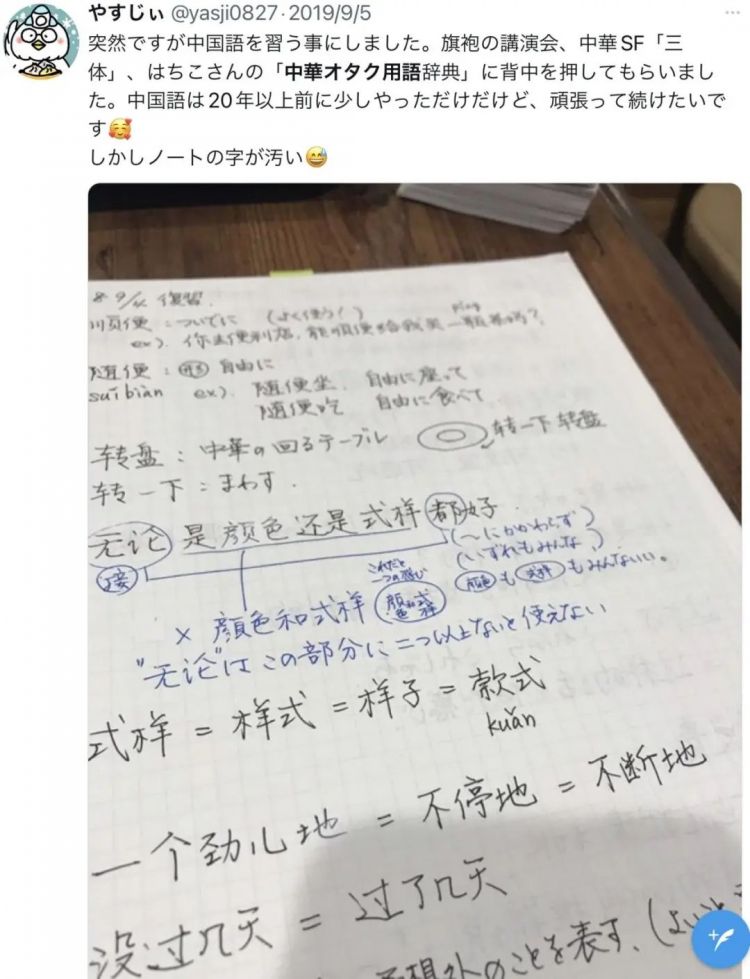 やすじぃ @yasji0827·2019/9/5
突然ですが中国語を習う事にしました。旗袍の講演会、中華SF「三
体」、はちこさんの「中華オタク用語辞典」に背中を押してもらいまし
た。中国語は20年以上前に少しやっただけだけど、頑張って続けたいで
す🥰
しかしノートの字が汚い😅
9/4 復習.
順便:ついでに (よく使う!)
ex). 你去便利店,能顺便给我买一瓶茶吗?
随便: 自由に
suíbiàn ex). 随便坐. 自由に座って
随便吃 自由に食べて
转盘:中華の回るテーブル 转一下转盘
转一下:まわす.
无论 是颜色还是式样 都好
(〜にかかわらず)
(いずれもみんな)
接
これだと
一つの扱い
顔色 も 式样 もみんないい。
× 顔色和式样 顔色和式样
"无论"はこの部分に二つ以上ないと使えない
式样 = 样式 = 样子 = 款式
kuǎn
一个劲儿地 = 不停地 = 不断地
没过几天 = 过了几天
予想外のことを表す.